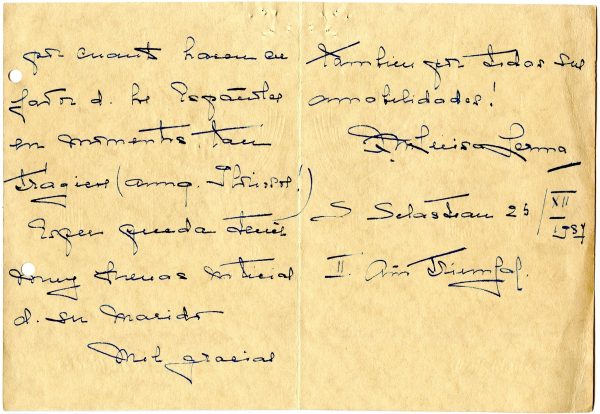 por cuanto hacen en
favor d. los Españoles
en momentos tan
trágicos (aunq. gloriosos!)
Espero pueda tener
muy buenas noticias
d. su marido
Mil gracias
también por todas sus
amabilidades!
Luisa Lerma
S Sebastian 25/XII
1937
II. Año Triunfal.